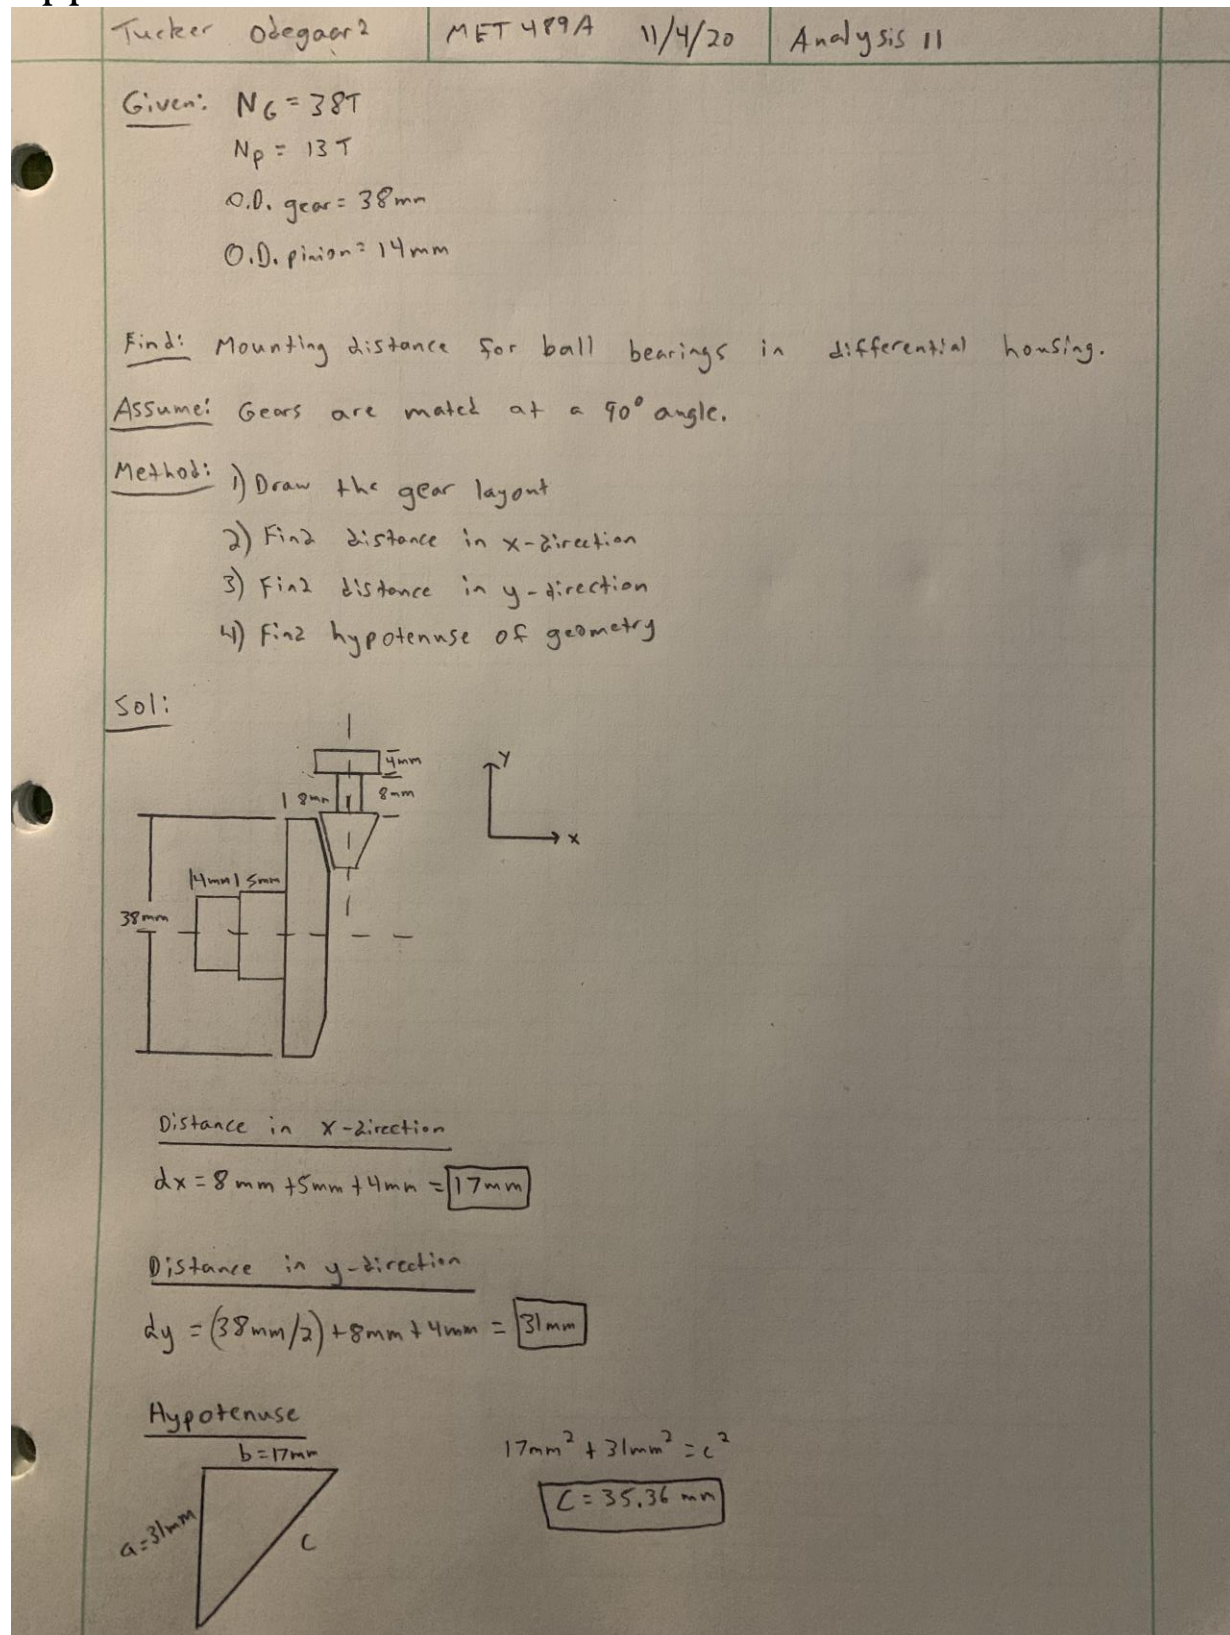 Tucker Odegaard MET 489A 11/4/20 Analysis 11
Given: N_G = 38T
N_p = 13T
O.D. gear = 38mm
O.D. pinion = 14mm
Find: Mounting distance for ball bearings in differential housing.
Assume: Gears are mated at a 90° angle.
Method: 1) Draw the gear layout
2) Find distance in x-direction
3) Find distance in y-direction
4) Find hypotenuse of geometry
Sol:
4mm
8mm 8mm
y
x
4mm 5mm
38mm
Distance in x-direction
dx = 8mm + 5mm + 4mm = 17mm
Distance in y-direction
dy = (38mm/2) + 8mm + 4mm = 31mm
Hypotenuse
b = 17mm
a = 31mm
c
17mm² + 31mm² = c²
C = 35.36 mm